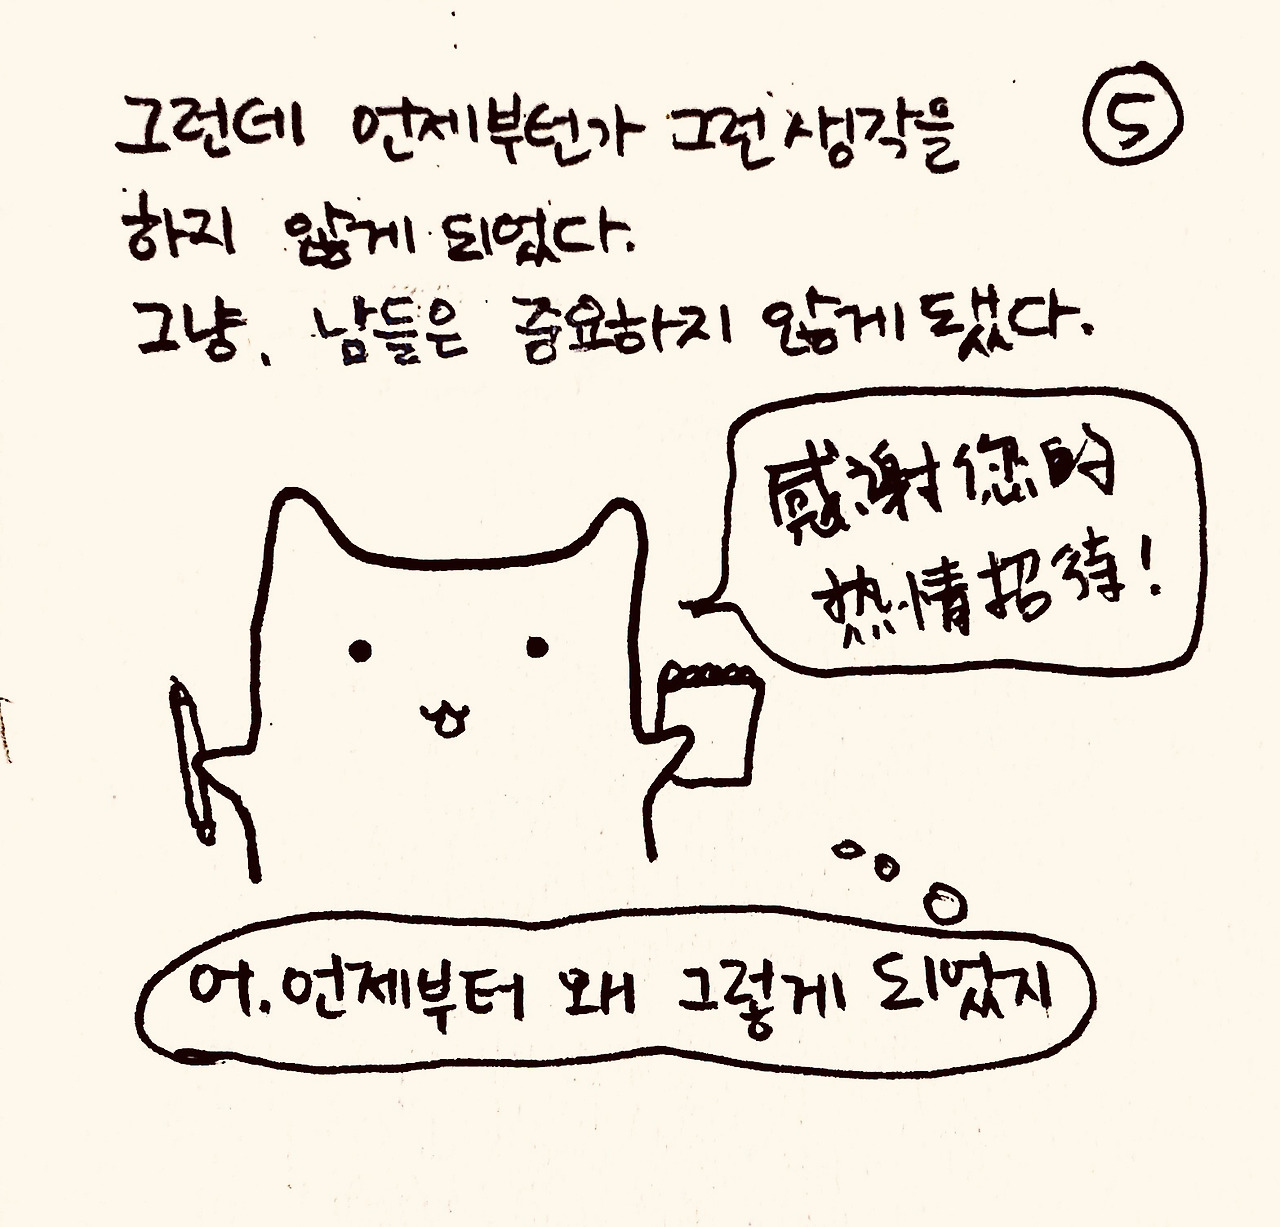 그런데 언제부턴가 그런 생각을
⑤
하지 않게 되었다.
그냥, 남들은 중요하지 않게 됐다.
感谢您的
热情招待!
어. 언제부터 왜 그렇게 되었지